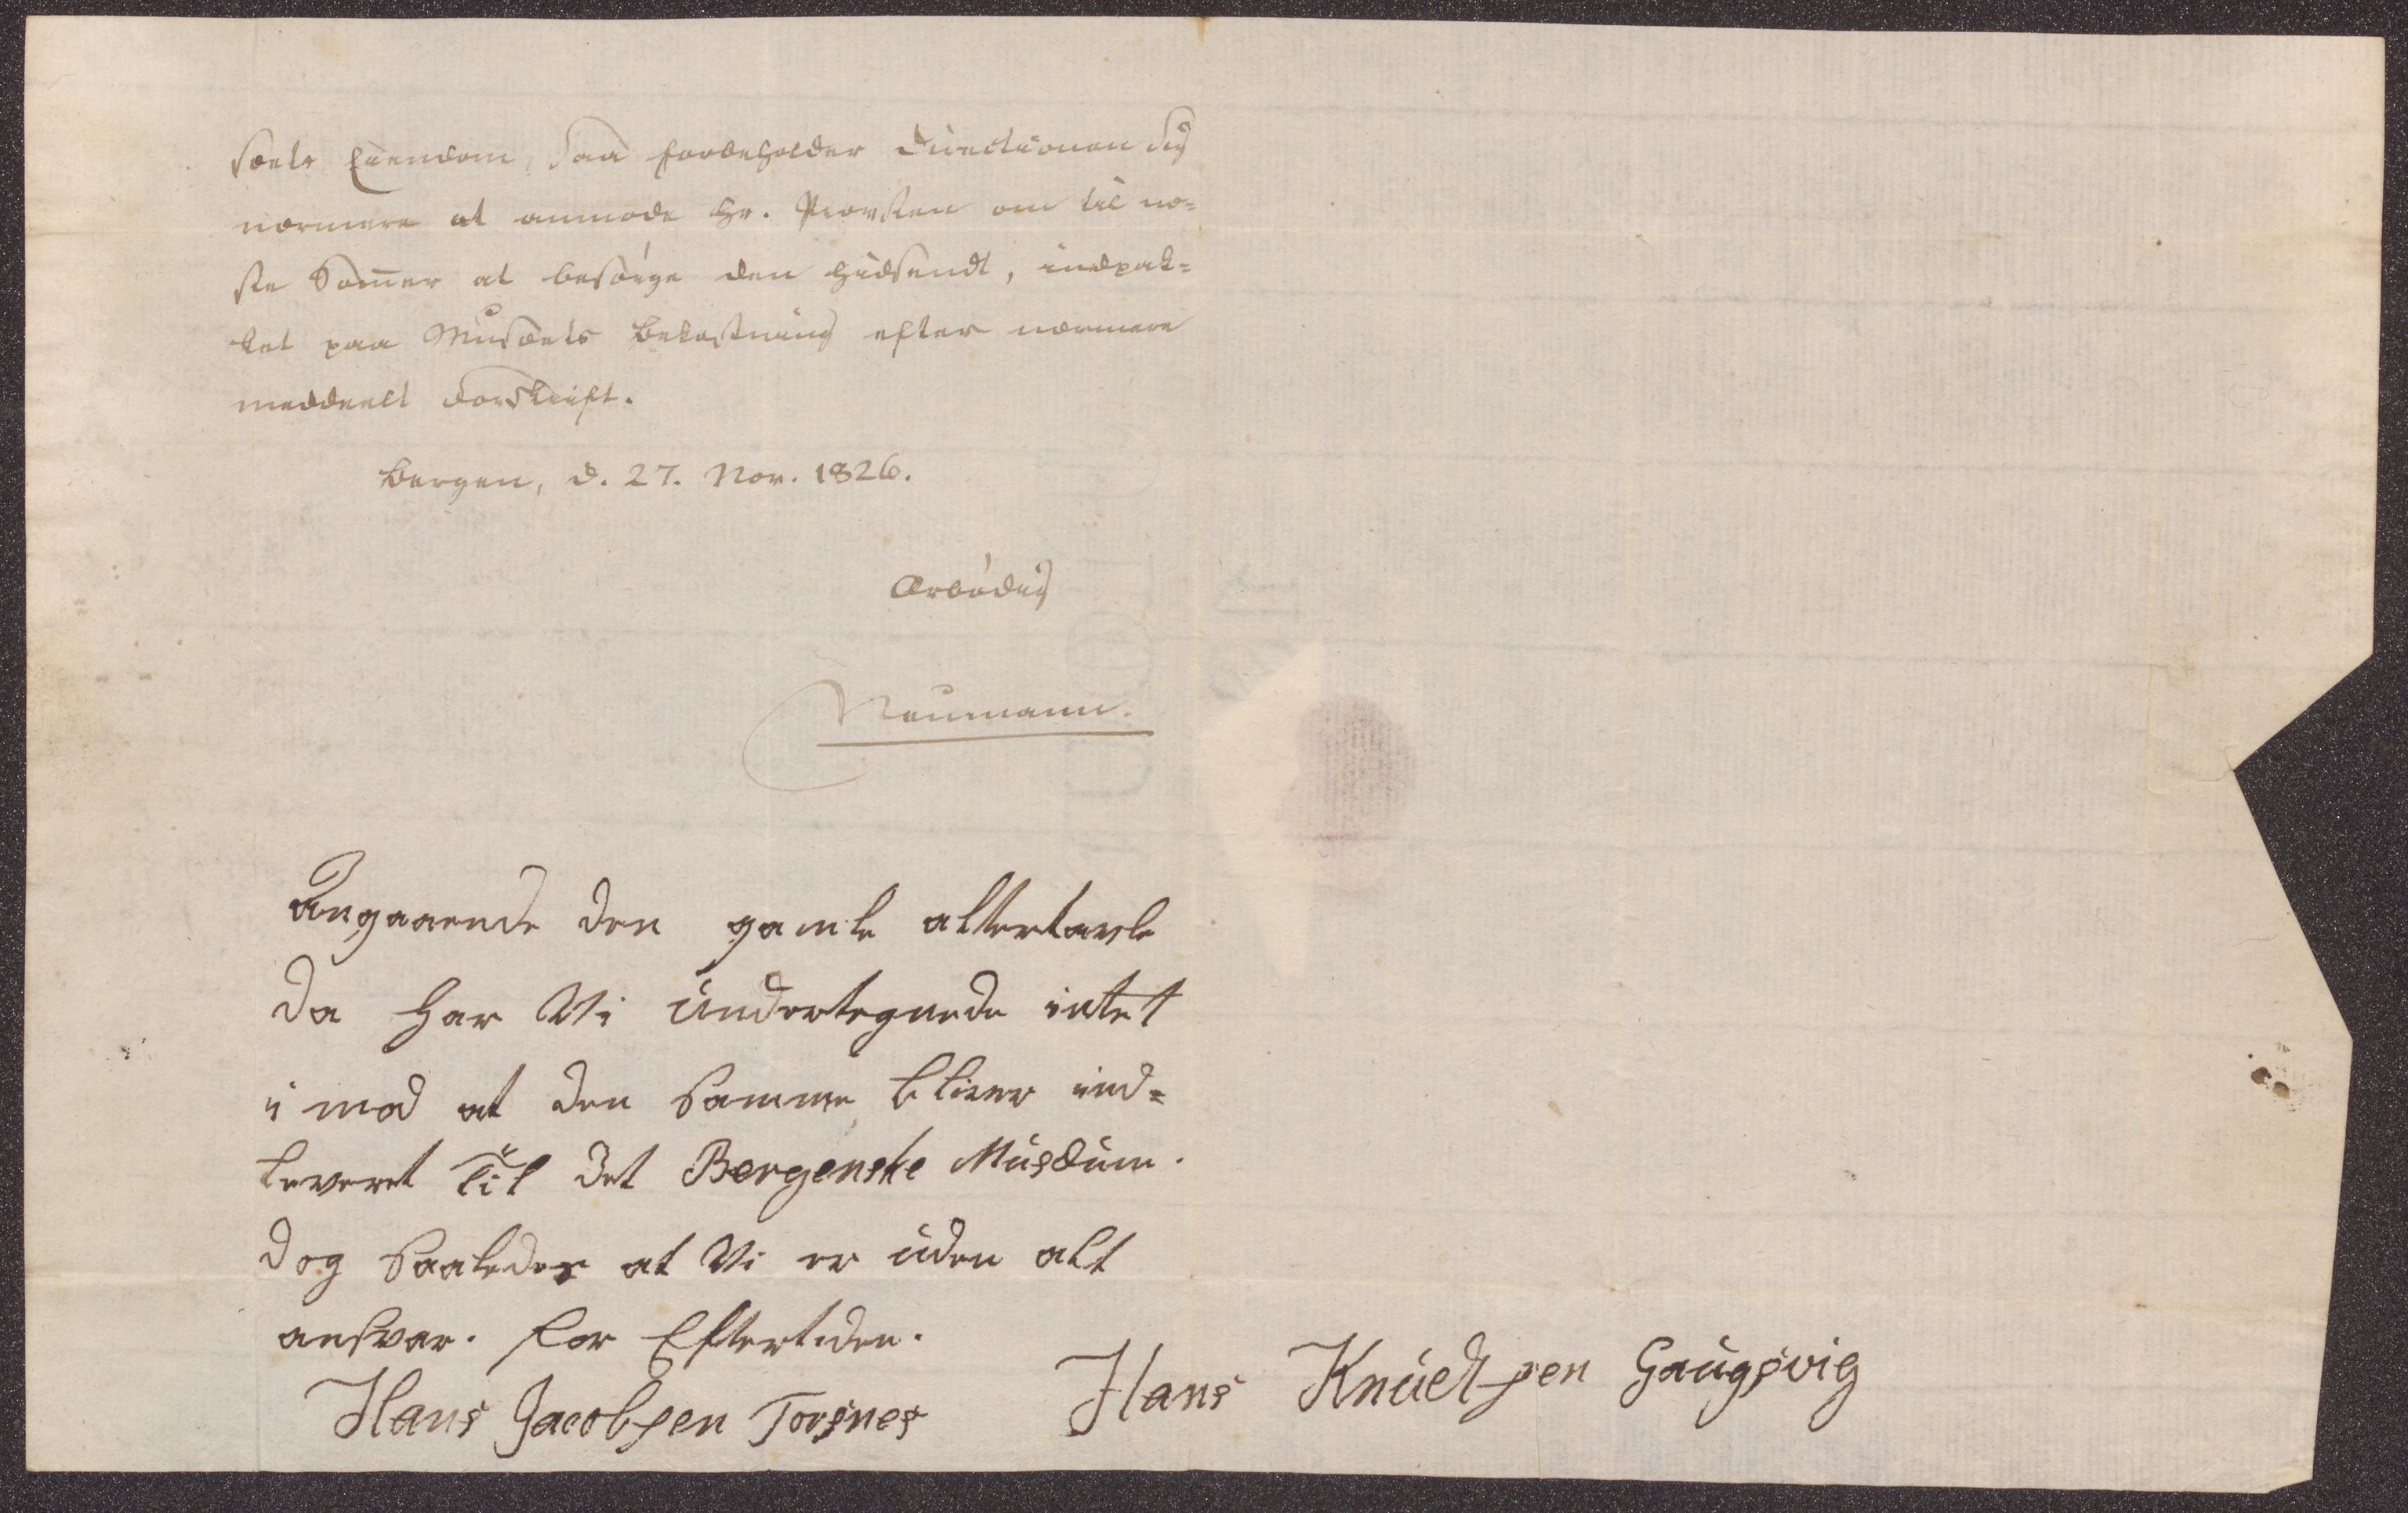 sæets Eiendom, saa forbeholder Directionen sig
nærmere at anmode Hr. Provsten om til næ-
ste Sommer at besørge den hidsendt, indpak-
ket paa Musæets Bekostning efter nærmere
meddeelt Forskrift.
Bergen, d. 27. Nov. 1826.
Ærbødig
Neumann.
Angaaende den gamle altertavle
da har Vi undertegnede intet
i mod at den samme bliver ind-
leveret til det Bergenske Musæum.
dog saaledes at Vi er uden alt
ansvar. for Eftertiden.
Hans Jacobsen Torsnes
Hans Knudtsen Gaugsvig